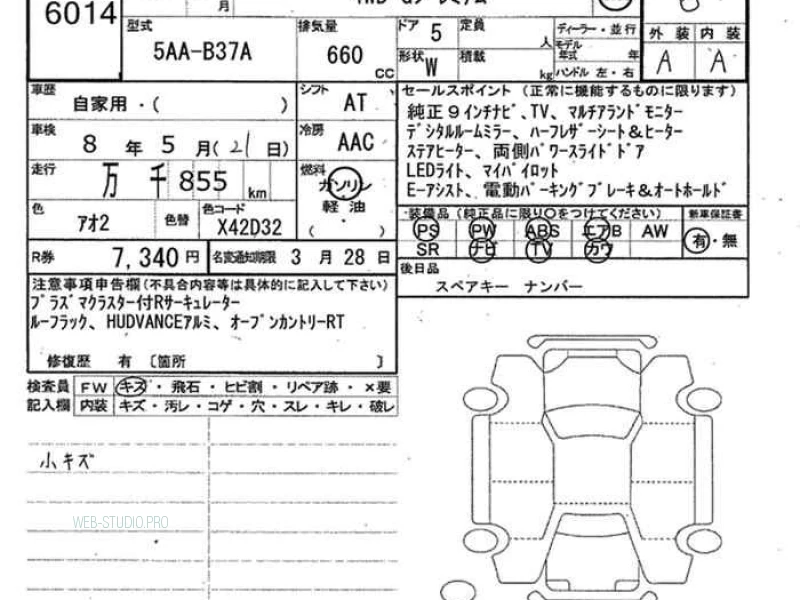 6014
月
型式 5AA-B37A 排気量 660 cc
ドア 5 定員 人
形状 W 積載 kg
ディーラー・並行
モデル年式 年
ハンドル 左・右
外装 内装
A A
車歴 自家用・( )
シフト AT
車検 8 年 5 月(21日)
冷房 AAC
走行 万 千 855 km
燃料 ガソリン
軽油
・
( )
色 アオ2 色替 色コード X42D32
R券 7,340円 名変通知期限 3 月 28 日
セールスポイント (正常に機能するものに限ります)
純正9インチナビ、TV、マルチアラウンドモニター
デジタルルームミラー、ハーフレザーシート&ヒーター
ステアヒーター、両側パワースライドドア
LEDライト、マイパイロット
E-アシスト、電動パーキングブレーキ&オートホールド
装備品 (純正品に限り○をつけてください) 新車保証書
PS PW ABS エアB AW
SR ナビ TV カワ
有・無
後日品
スペアキー ナンバー
注意事項申告欄(不具合内容等は具体的に記入して下さい)
プラズマクラスター付Rサーキュレーター
ルーフラック、HUDVANCEアルミ、オープンカントリーRT
修復歴 有 〔箇所 〕
検査員 FW キズ・飛石・ヒビ割・リペア跡・×要
記入欄 内装 キズ・汚レ・コゲ・穴・スレ・キレ・破レ
小キズ
WEB-STUDIO.PRO